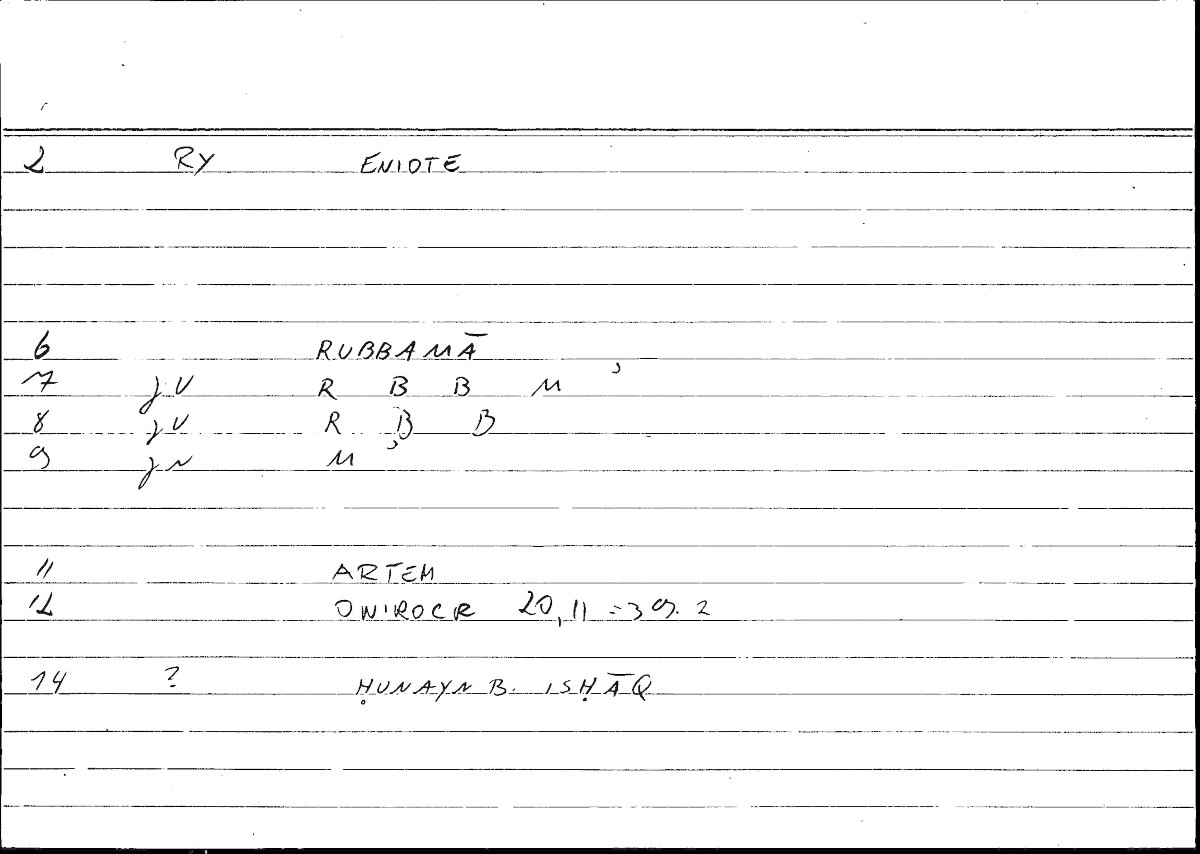 2 RY ENIOTE
6 RUBBAMĀ
7 jv R B B M ʾ
8 jv R B B
9 jn M ʾ
11 ARTEM
12 ONIROCR 20,11 = 39.2
14 ? ḤUNAYN B. ISḤĀQ